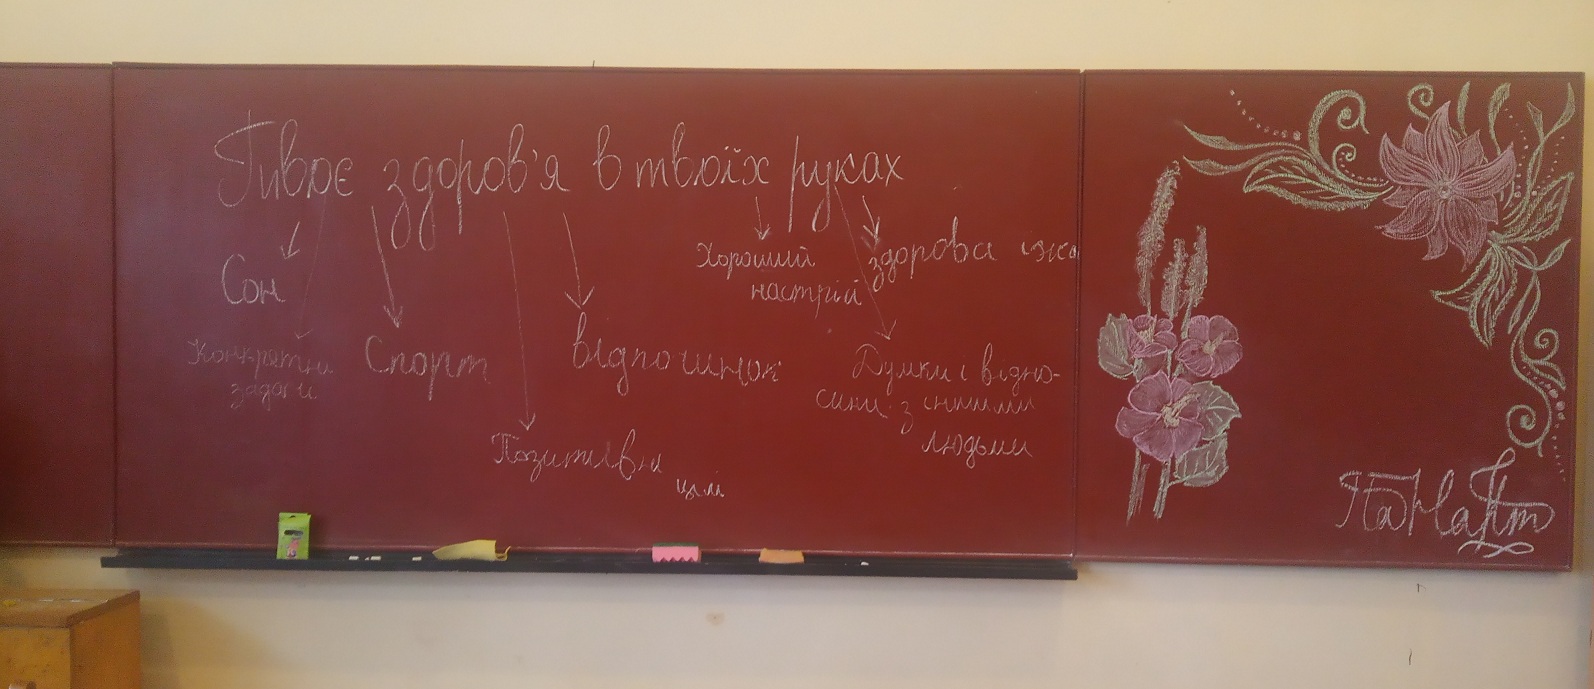 Твоє здоров'я в твоїх руках
Сон
Конкретні
задачі
Спорт
Позитивні
цілі
відпочинок
Хороший
настрій
здорова їжа
Думки і відно-
сини з іншими
людьми